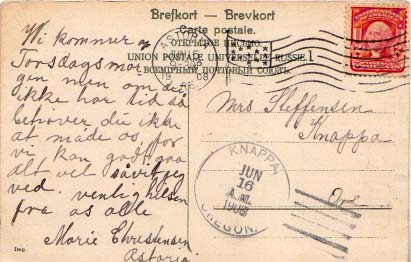 Brefkort - Brevkort
Carte postale.
ОТКРЫТОЕ ПИСЬМО.
UNION POSTALE UNIVERSELLE RUSSIE.
ВСЕМИРНЫЙ ПОЧТОВЫЙ СОЮЗЪ.
Vi kommer og
Torsdagsmor
gen men om de
ikke har tid så
behøver du ikke
at møde os for
vi kan godt gaa
alt vel såvit jeg
ved. venlig hilsen
fra os alle
Marie Christensen
Astoria
Imp.
Mrs Steffensen
Knappa
Ore
ASTORIA
JUN 15
1908
KNAPPA,
JUN
16
A.M.
1908
OREGON.